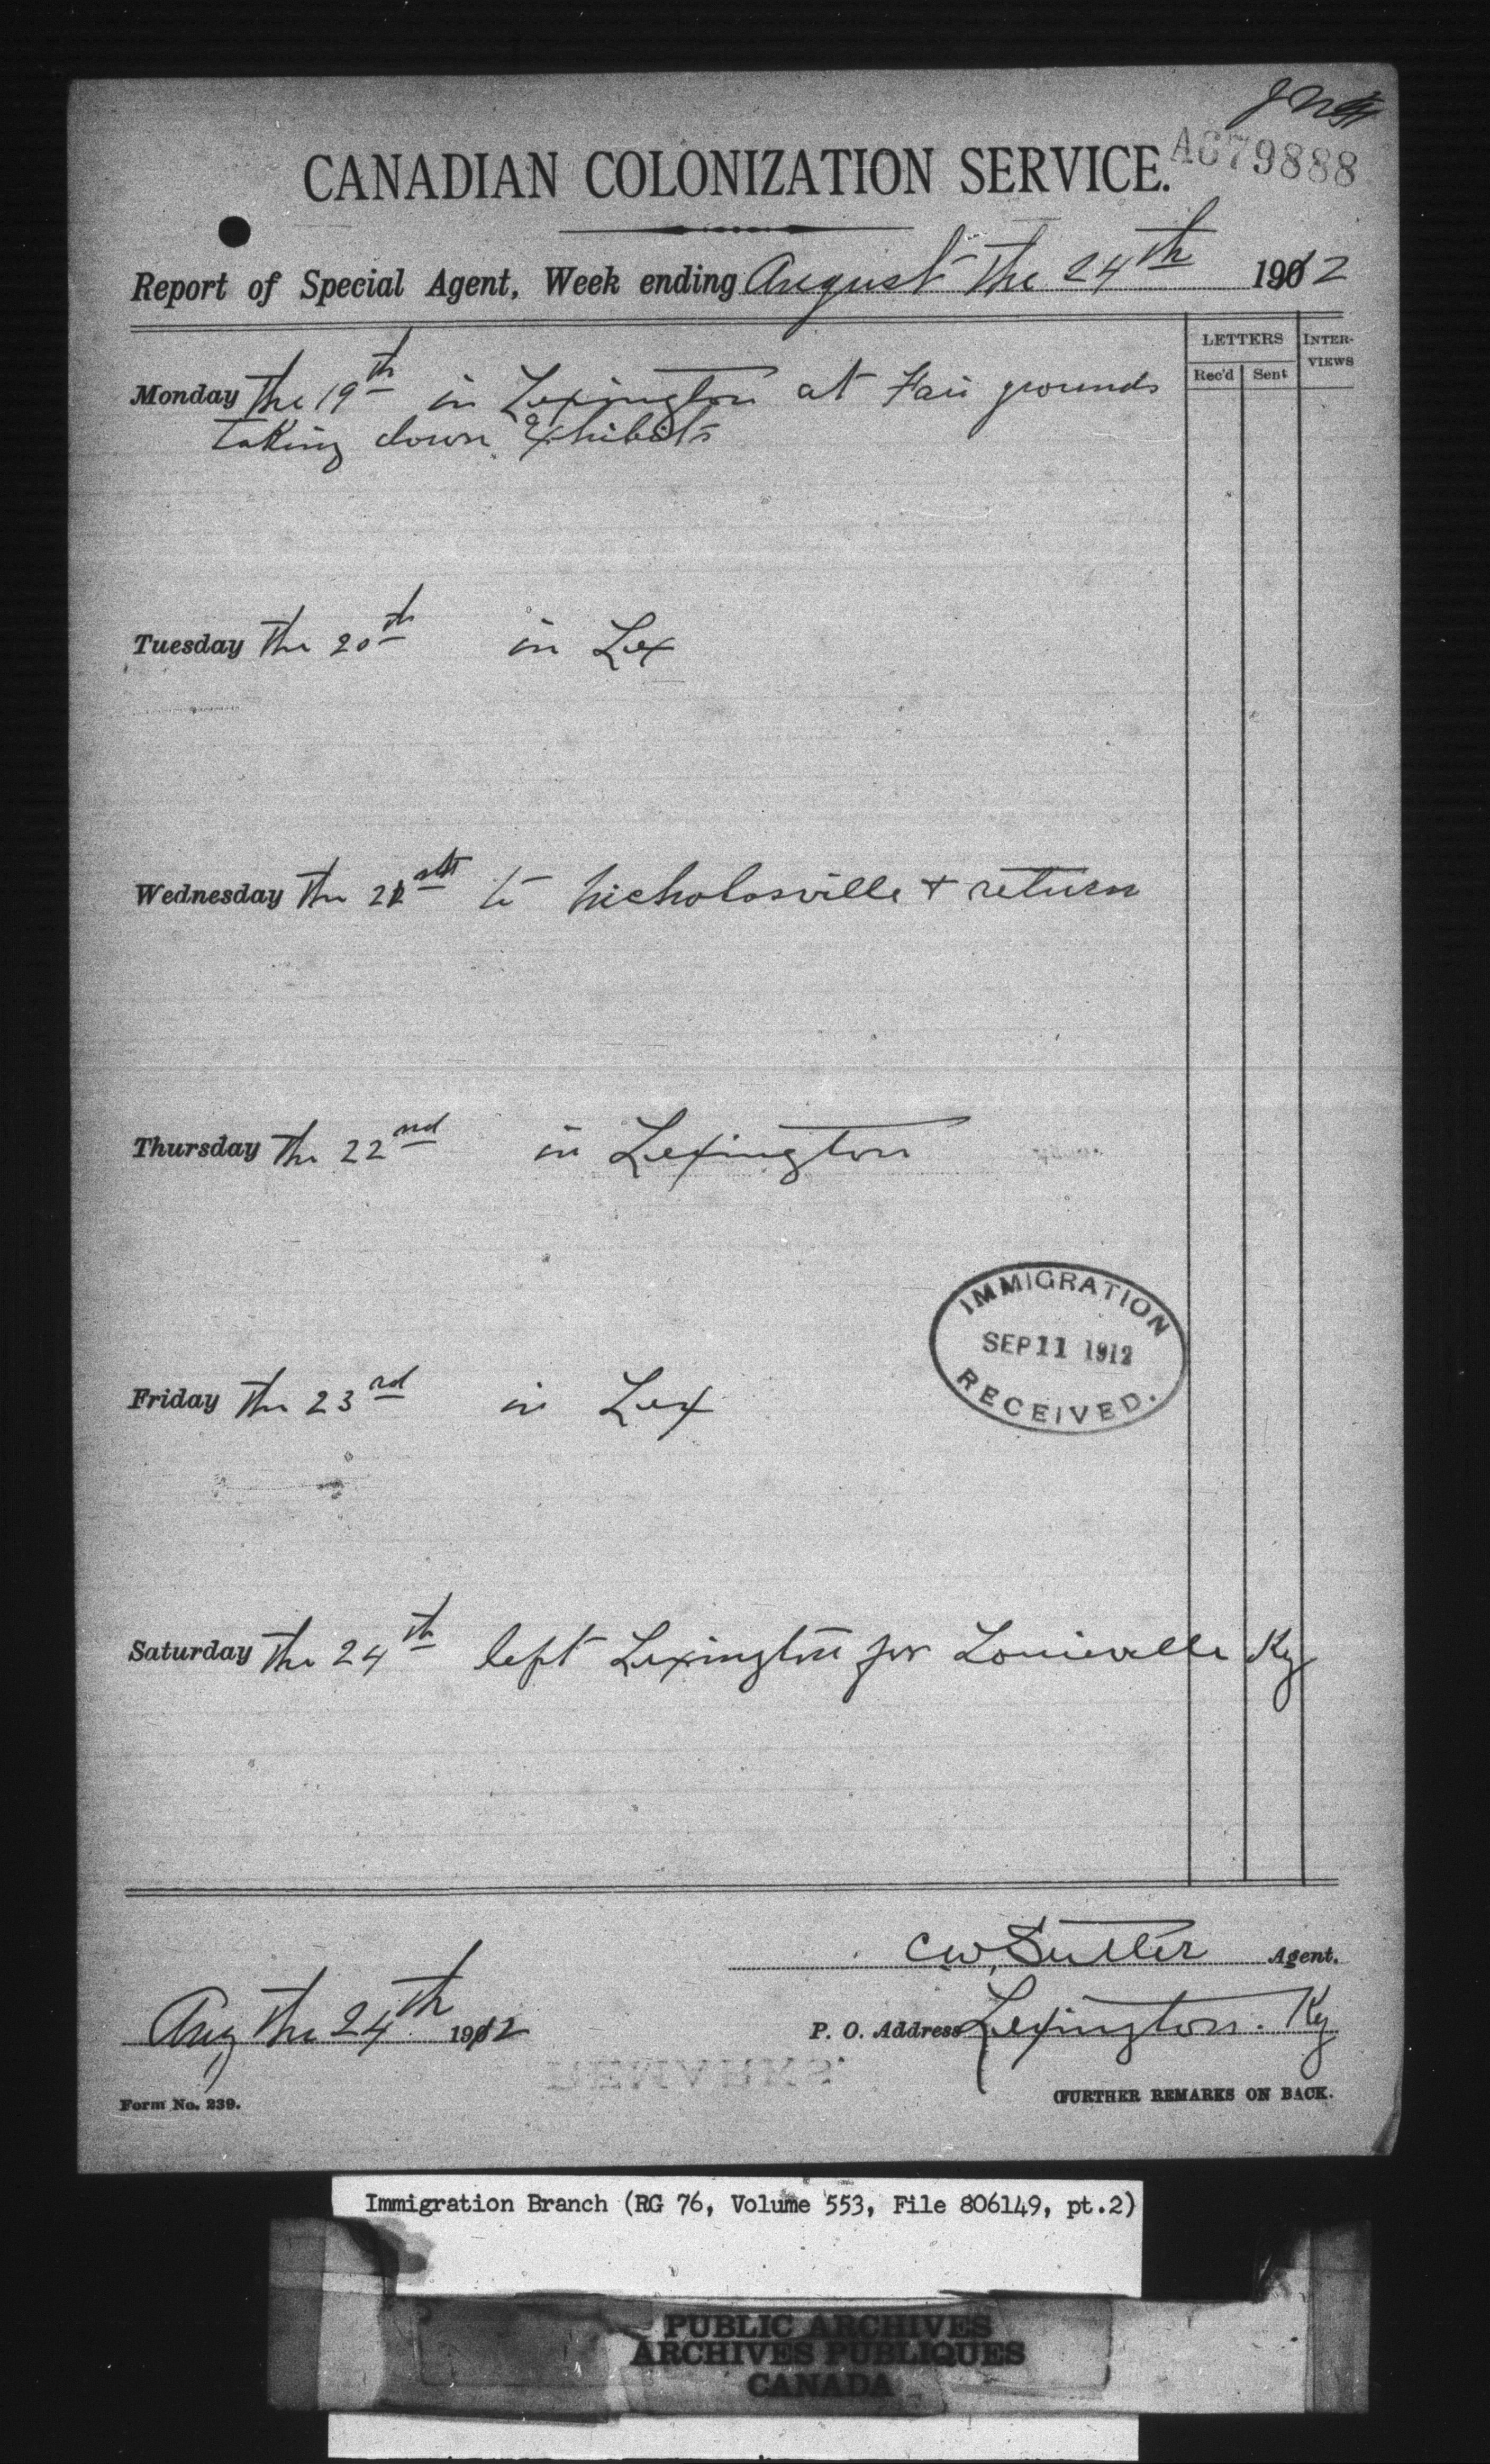 A679888
CANADIAN COLONIZATION SERVICE.
Report of Special Agent, Week ending August the 24th 1912
LETTERS INTER-
VIEWS
Rec'd Sent
Monday the 19th in Lexington at Fair grounds
taking down Exhibits
Tuesday the 20th in Lex
Wednesday the 21st to Nicholasville + return
Thursday the 22nd in Lexington
IMMIGRATION
SEP 11 1912
RECEIVED.
Friday the 23rd in Lex
Saturday the 24th left Lexington for Louieville Ky
CW Sutter Agent.
Aug the 24th 1912
P. O. Address Lexington. Ky
Form No. 239.
(FURTHER REMARKS ON BACK.
Immigration Branch (RG 76, Volume 553, File 806149, pt.2)
PUBLIC ARCHIVES
ARCHIVES PUBLIQUES
CANADA